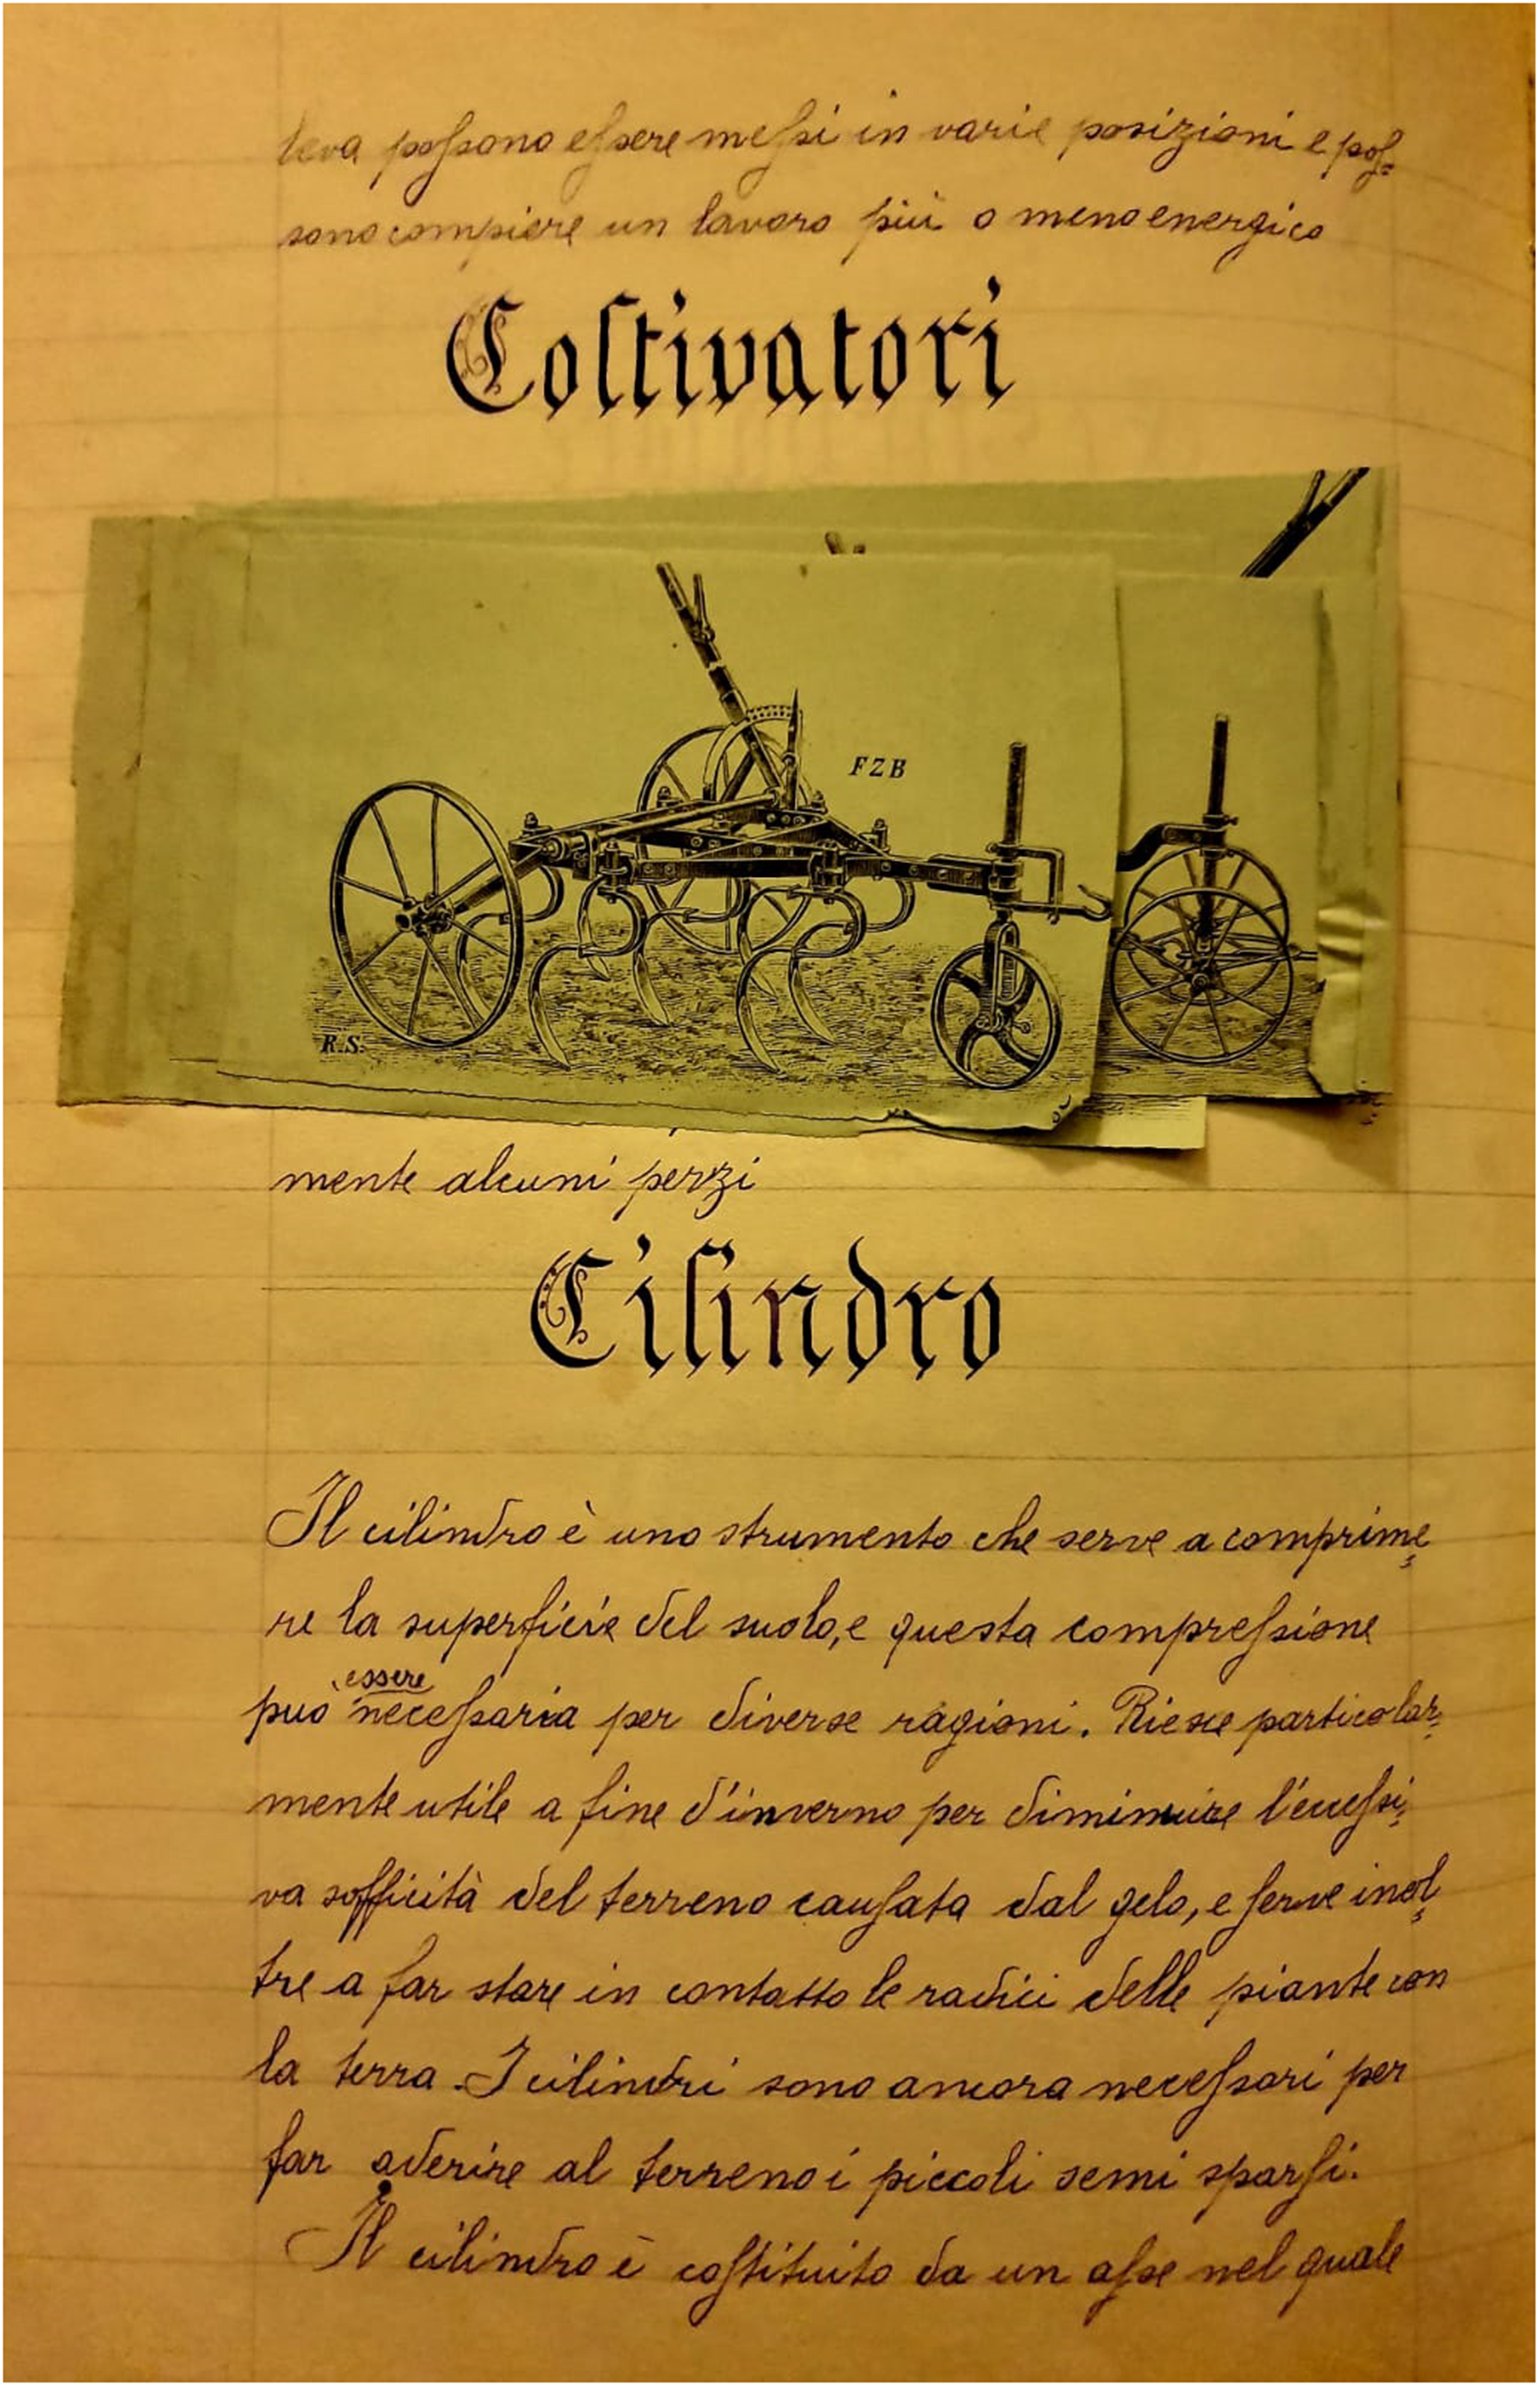 leva possono essere messi in varie posizioni e pos=
sono compiere un lavoro più o meno energico
Coltivatori
FZB
R.S.
mente alcuni pezzi
Cilindro
Il cilindro è uno strumento che serve a comprime=
re la superficie del suolo, e questa compressione
essere
può necessaria per diverse ragioni. Riesce particolar=
mente utile a fine d'inverno per diminuire l'eccessi=
va sofficità del terreno causata dal gelo, e serve inol=
tre a far stare in contatto le radici delle piante con
la terra. I cilindri sono ancora necessari per
far aderire al terreno i piccoli semi sparsi.
Il cilindro è costituito da un asse nel quale